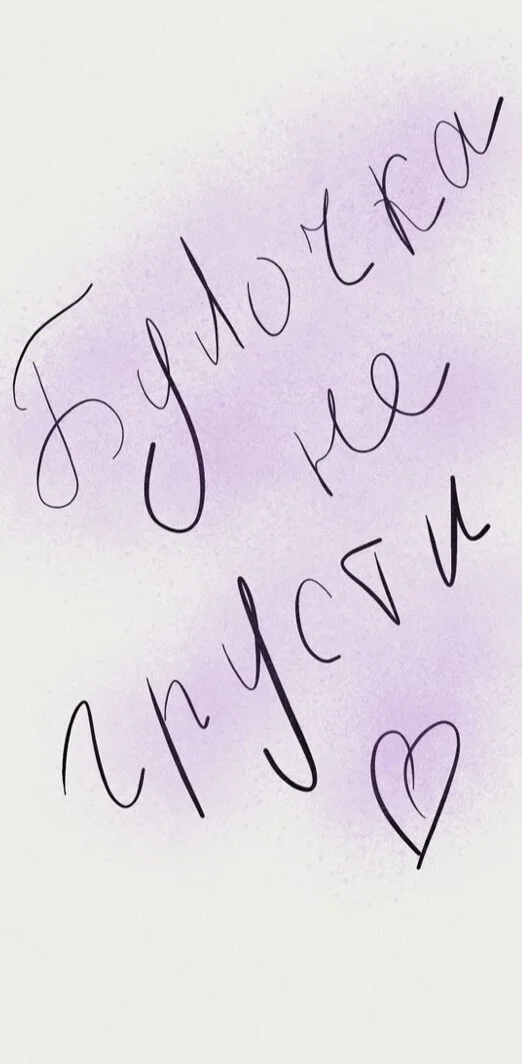 Булочка
не
грусти